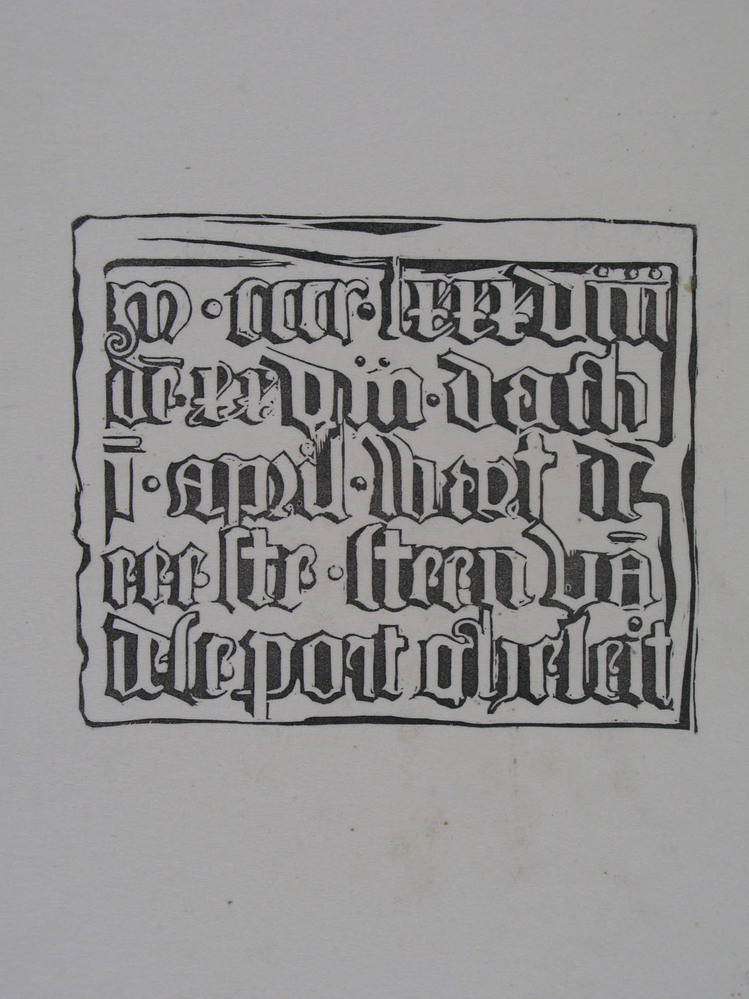 m · cccc · lxxxviii
dē · xxviii · dach
ī · april · wart dē
eerste · steen vā
dese port gheleit